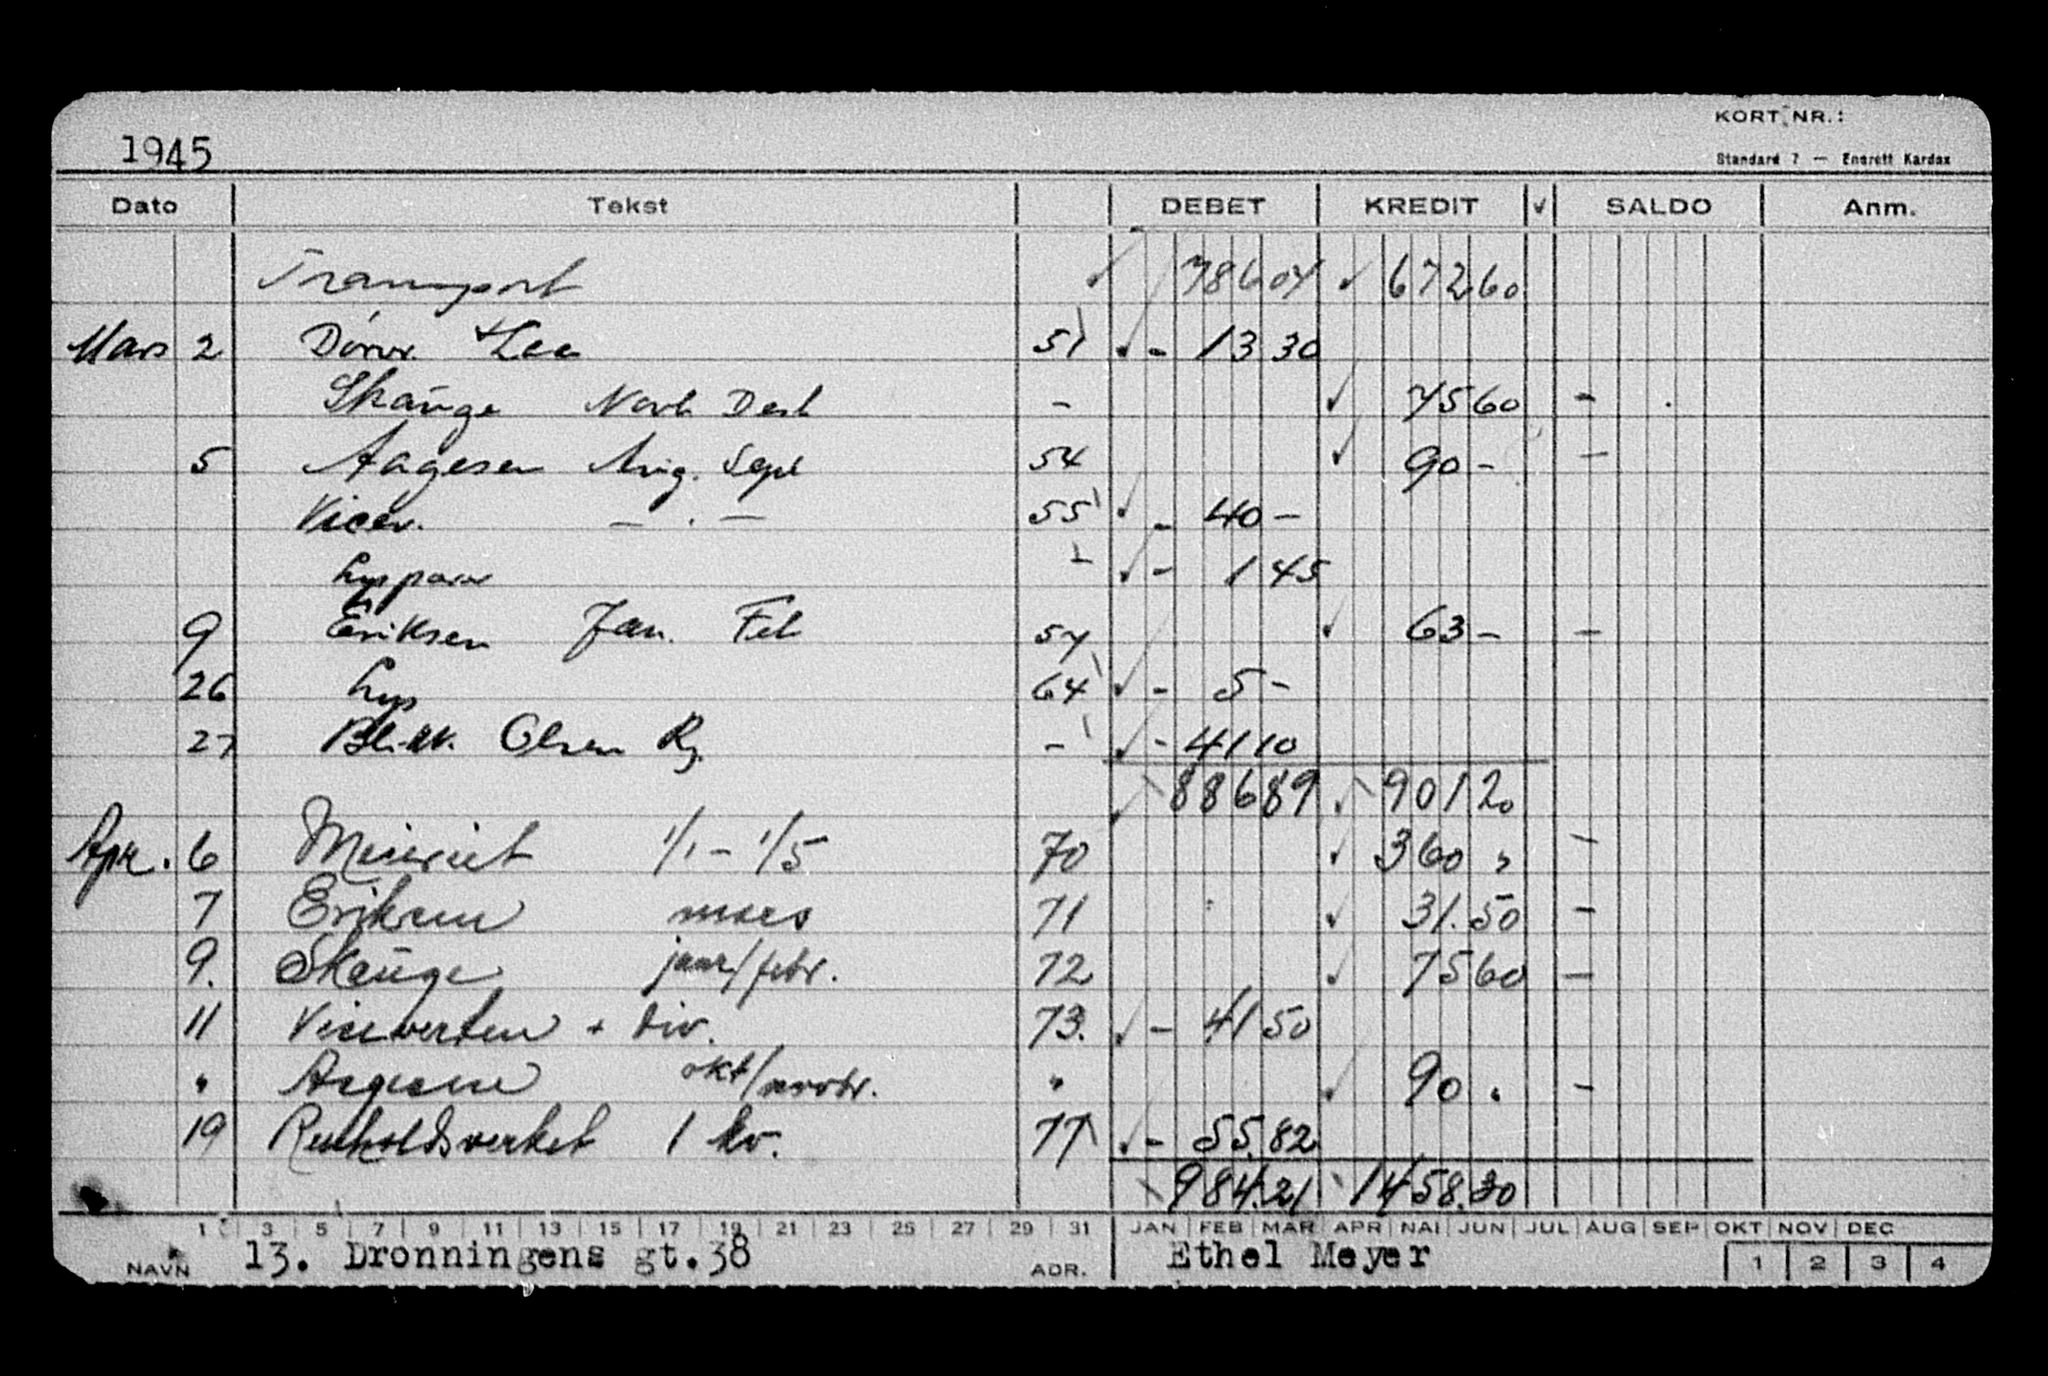 KORT NR.:
1945
Standard 7 — Enerett Kardex
Dato Tekst DEBET KREDIT √ SALDO Anm.
Transport 786 04 672 60
Mars 2 51 - 13 30
Skauge Novb Desb - 75 60 -
5 Aagesen Aug. Sept 54 90 - -
Vicev. — . — 55 - 40 -
Lyspærer - - 1 45
9 Eriksen Jan. Feb 57 63 - -
26 Lys 64 - 5 -
27 Olsen Rg. - - 41 10
886 89 901 20
Apr. 6 1/1 - 1/5 70 360 " -
7 Eriksen mars 71 31.50 -
9. Skauge jan/febr. 72 75 60 -
11 Viseverten + div. 73. - 41 50
" Aagesen okt/novbr. " 90 . -
19 Renholdsverket 1 kv. 77 - 55.82
984.21 1458.30
1 3 5 7 9 11 13 15 17 19 21 23 25 27 29 31 JAN FEB MAR APR MAI JUN JUL AUG SEP OKT NOV DEC
NAVN 13. Dronningens gt.38 ADR. Ethel Meyer 1 2 3 4